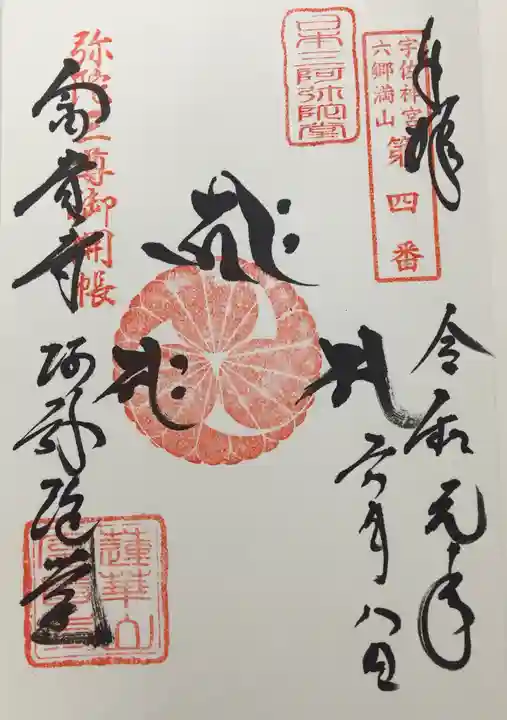 奉拝
宇佐神宮
六郷満山
第四番
令和元年
六月八日
日本三阿弥陀堂
弥陀三尊御開帳
富貴寺
阿弥陀堂
蓮華山
富貴寺